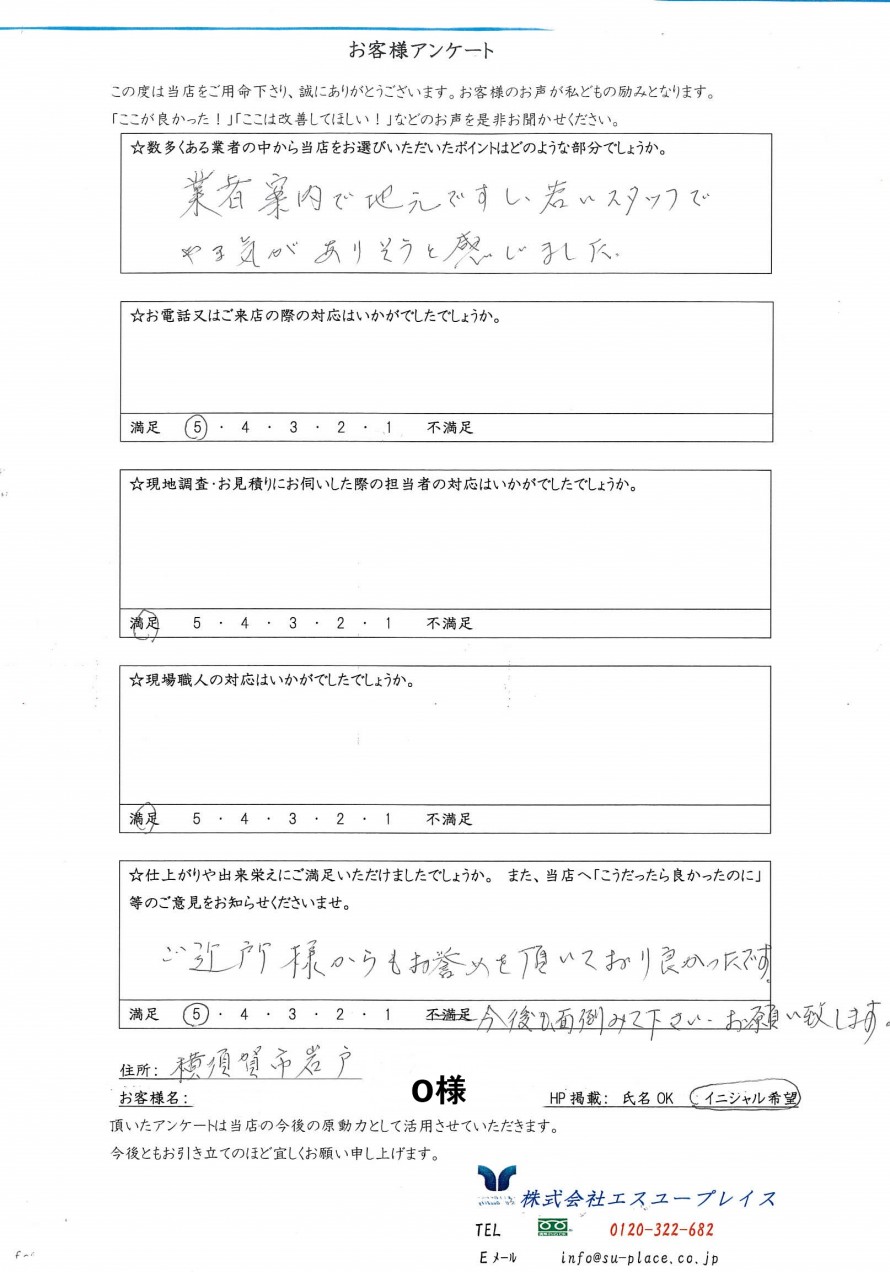 お客様アンケート
この度は当店をご用命下さり、誠にありがとうございます。お客様のお声が私どもの励みとなります。
「ここが良かった！」「ここは改善してほしい！」などのお声を是非お聞かせください。
☆数多くある業者の中から当店をお選びいただいたポイントはどのような部分でしょうか。
業者案内で地元ですし、若いスタッフで
やる気がありそうと感じました。
☆お電話又はご来店の際の対応はいかがでしたでしょうか。
満足 5・4・3・2・1 不満足
☆現地調査・お見積りにお伺いした際の担当者の対応はいかがでしたでしょうか。
満足 5・4・3・2・1 不満足
☆現場職人の対応はいかがでしたでしょうか。
満足 5・4・3・2・1 不満足
☆仕上がりや出来栄えにご満足いただけましたでしょうか。 また、当店へ「こうだったら良かったのに」
等のご意見をお知らせくださいませ。
ご近所様からもお誉めを頂いており良かったです。
満足 5・4・3・2・1 不満足 今後も面倒みて下さい。お願い致します。
住所: 横須賀市岩戸
お客様名: O様 HP掲載: 氏名OK イニシャル希望
頂いたアンケートは当店の今後の原動力として活用させていただきます。
今後ともお引き立てのほど宜しくお願い申し上げます。
株式会社エスユープレイス
TEL 0120-322-682
Eメール info@su-place.co.jp